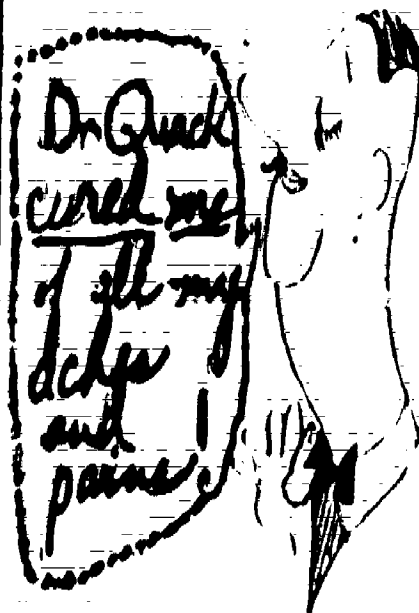 Dr Quack
cured me
of all my
aches
and
pains!